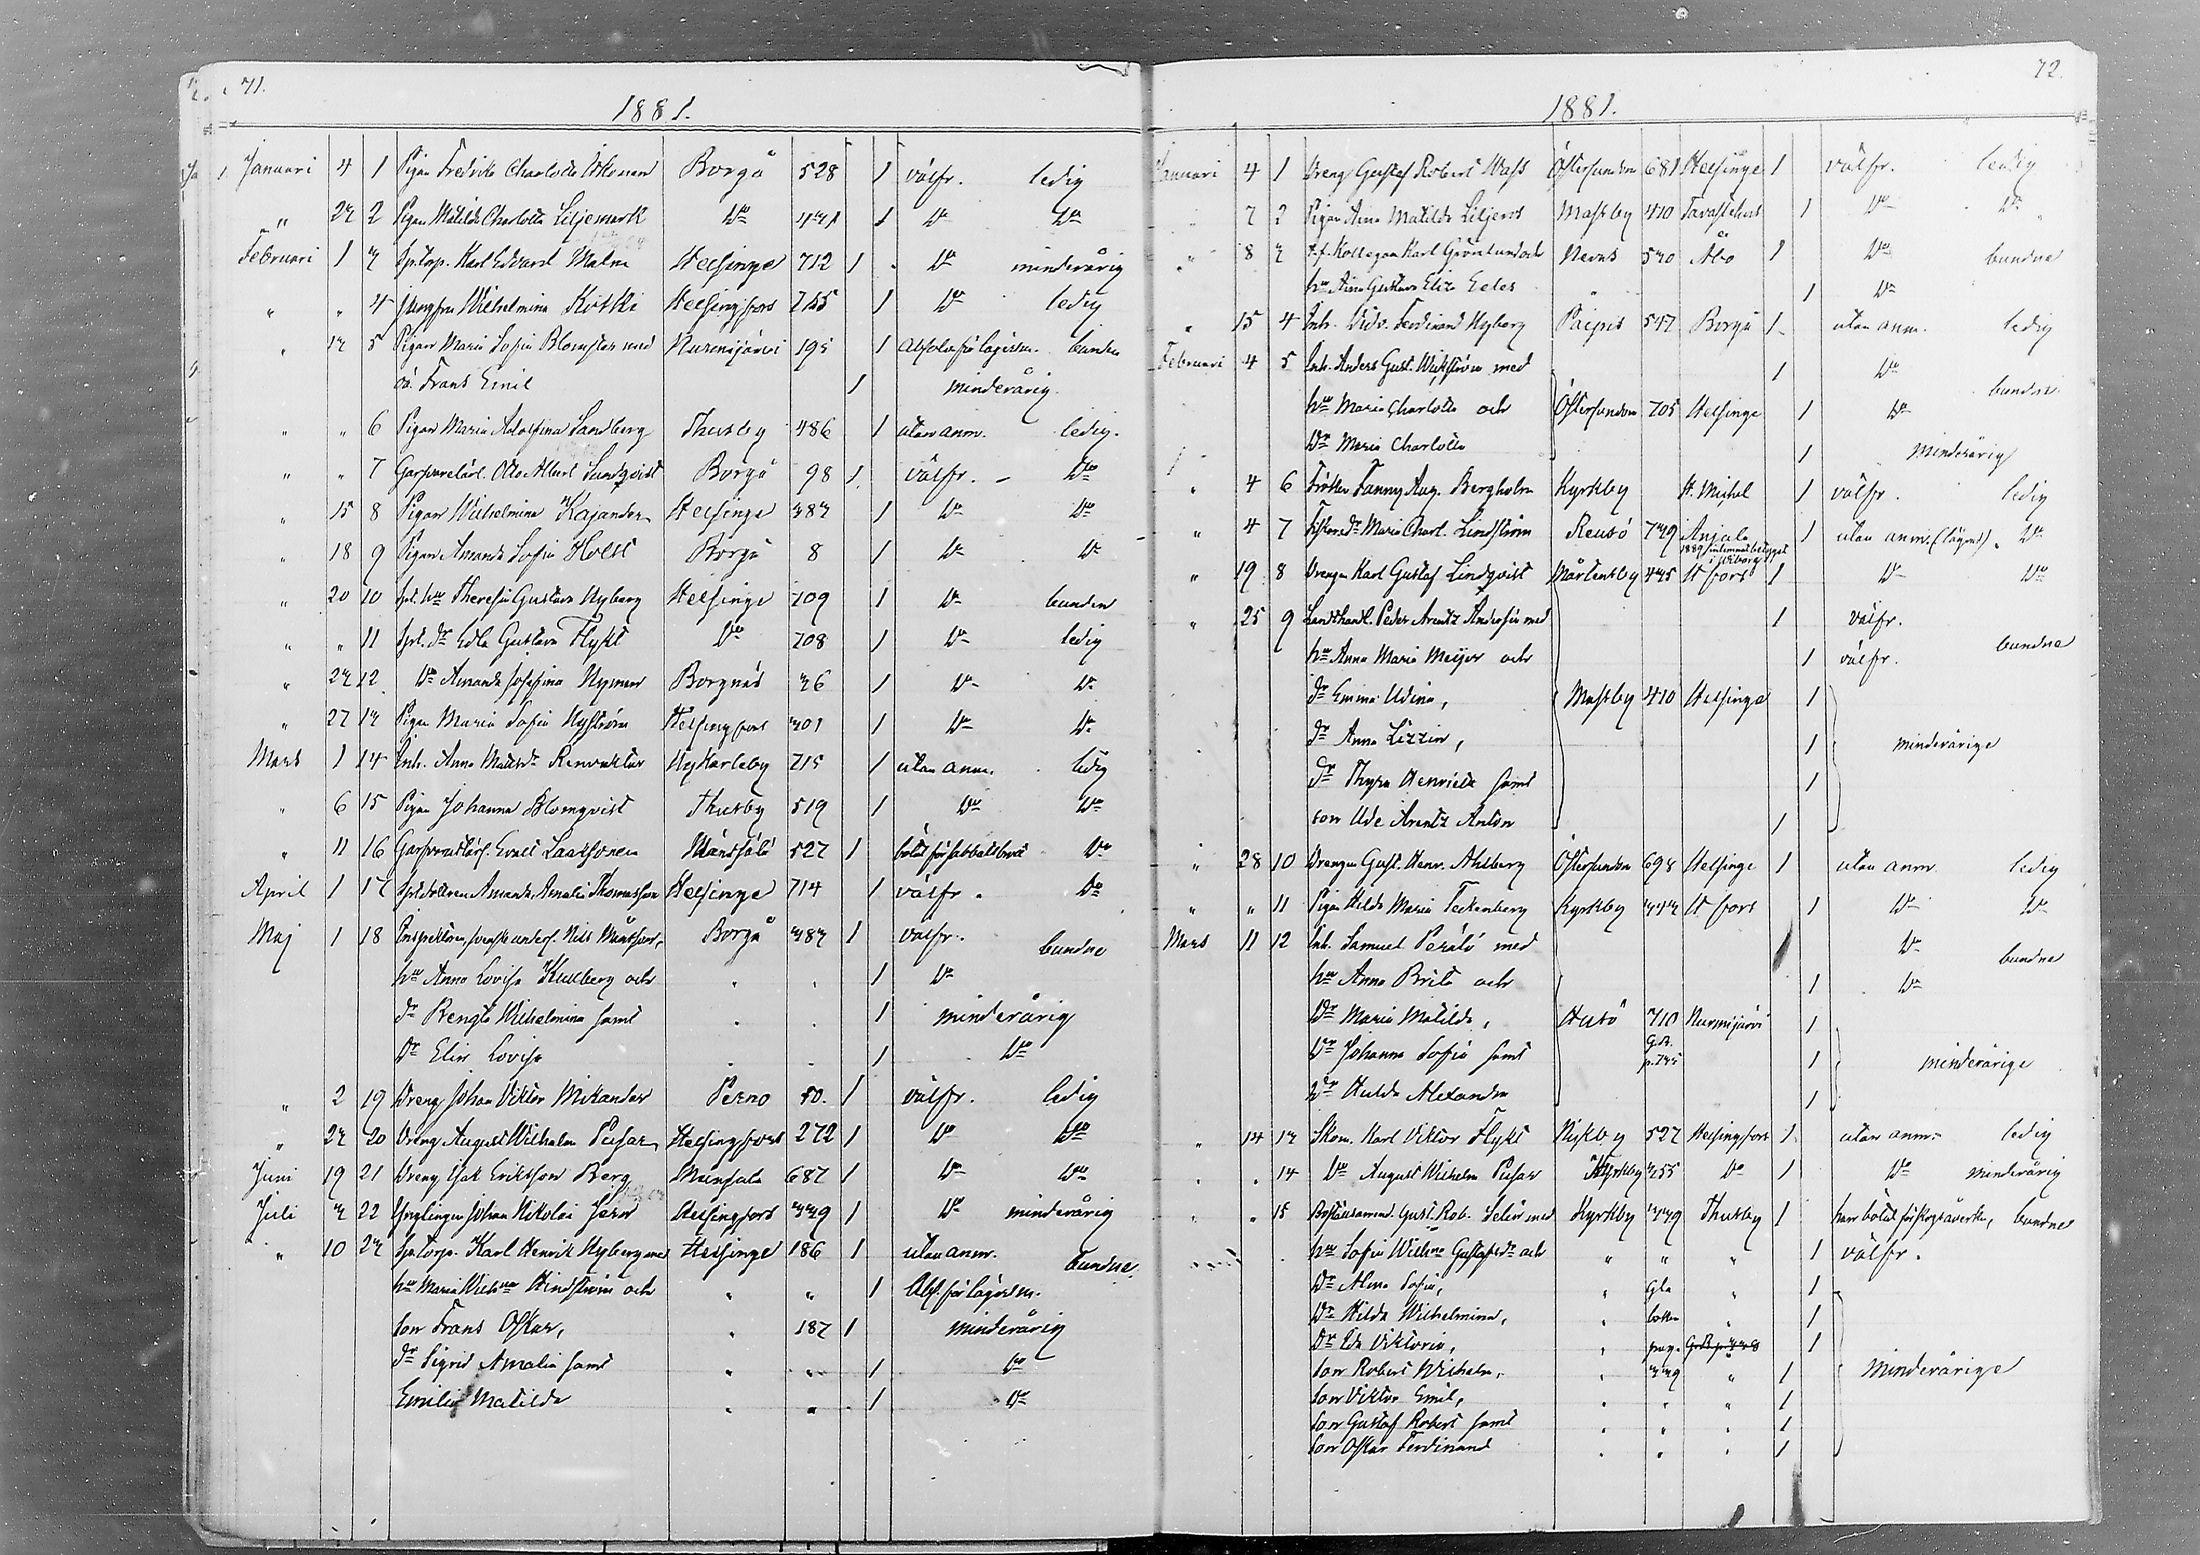 71.
1881.
Januari 4 1 Pigan Fredrika Charlotta Borgå 528 1 välfr. ledig
" 23 2 Pigan Matilda Charlotta Liljemark Do 431 1 Do Do
Februari 1 3 Sp.torp. Karl Edvard Malm Helsinge 712 1 Do minderårig
" " 4 Jungfru Wilhelmina Helsingfors 1 Do ledig
" 13 5 Pigan Maria Sofia Blomster med Nurmijärvi 195 1 Absolv. för lägersm. bunden
oä. Frans Emil 1 minderårig
" " 6 Pigan Maria Adolfina Sandberg Thusby 486 1 utan anm. ledig.
" " 7 Garfvarelärl. Otto Albert Sundqvist Borgå 98 1 välfr. Do
" 15 8 Pigan Wilhelmina Kajander Helsinge 383 1 Do Do
" 18 9 Pigan Amanda Sofia Holst Borgå 8 1 Do Do
" 20 10 hu Theresia Gustava Nyberg Helsinge 709 1 Do bunden
" " 11 dr Edla Gustava Flykt Do 708 1 Do ledig
" 23 12 Do Amanda Josefina Nyman Borgnäs 36 1 Do Do
" 27 13 Pigan Maria Sofia Nyström Helsingfors 301 1 Do Do
Mars 1 14 Inh. Anna Mattsdr Nykarleby 715 1 utan anm. ledig
" 6 15 Pigan Johanna Blomqvist Thusby 519 1 Do Do
" 11 16 Evald Laaksonen Mäntsälä 527 1 bötat för sabbatsbrott Do
April 1 17 Amanda Amalia Thomasson Helsinge 714 1 välfr. Do
Maj 1 18 Inspektoren svenske unders. Nils Månsson, Borgå 383 1 välfr. bundne
hu Anna Lovisa Kullberg och " " 1 Do
dr Bengta Wilhelmina samt " " 1 minderårig
Dr Elin Lovisa " " 1 Do
" 2 19 Dreng Johan Viktor Mikander Perno 50. 1 välfr. ledig
" 23 20 Dreng August Wilhelm Pusar Helsingfors 272 1 Do Do
Juni 19 21 Dreng Isak Eriksson Berg 687 1 Do Do
Juli 3 22 Ynglingen Johan Nikolai Jern Helsingfors 339 1 Do minderårig
" 10 23 Sp.torp. Karl Henrik Nyberg med Helsinge 186 1 utan anm. bundne.
hu Maria Wilhna Lindström och " " 1 Abs. för lägersm.
son Frans Oskar, " 187 1 minderårig
dr Sigrid Amalia samt " " 1 Do
Emilia Matilda " " 1 Do
72.
1881.
Januari 4 1 Dreng Gustaf Robert Wass Östersundom 681 Helsinge 1 välfr. ledig
" 7 2 Pigan Aina Matilda Liljeros Massby 410 Tavastehus 1 Do Do
" 8 3 t.f. Kollegan Karl Grönlund och Nevas 530 Åbo 1 Do bundne
hu Aina Gustava Eliza 1 Do
" 15 4 Inh. Ferdinand Nyberg Paipis 547 Borgå 1 utan anm. ledig
Februari 4 5 Inh. Anders Gust. Wikström med 1 Do bundne
hu Maria Charlotta och Östersundom 705 Helsinge 1 Do
Dr Maria Charlotta 1 minderårig
" 4 6 Fröken Fanny Aug. Bergholm Kyrkby St. Michel 1 välfr. ledig
" 4 7 Maria Charl. Lindström Reusö 749 Anjala 1 utan anm. (lägersm.) Do
1889 intimat betyget i Wiborg
" 19 8 Drengen Karl Gustaf Lindqvist Mårtensby 435 H:fors 1 Do Do
" 25 9 Landthandl. Peder Arentz Andersin med 1 välfr. bundne
hu Anna Maria Meijer och 1 välfr.
dr Emma Udina, Massby 410 Helsinge 1
dr Anna Lizzin, 1 minderårige
dr Thyra Henriette samt 1
son Ude Arentz Anton 1
" 28 10 Drengen Gust. Henr. Ahlberg Östersundom 698 Helsinge 1 utan anm. ledig
" " 11 Pigan Hilda Maria Teckenberg Kyrkby 343 H:fors 1 Do Do
Mars 11 12 Inh. Samuel Perälä med Do bundne
hu Anna Brita och 1 Do
Dr Maria Matilda, Husö 710 Nurmijärvi 1
Dr Johanna Sofia samt G.B. p. 735 1 minderårige
Dr Hulda Alexandra 1
" 14 13 Skom. Karl Viktor Flykt Nickby 527 Helsingfors 1 utan anm. ledig
" " 14 Do August Wilhelm Pusar Kyrkby 355 Do 1 Do minderårig
" " 15 Gust. Rob. Selin med Kyrkby 339 Thusby 1 har bötat för skogsåverkan, bundne
hu Sofia Wilhna Gustafsdr och " " " 1 välfr.
Dr Alma Sofia, " Gla " 1
Dr Hilda Wilhelmina, " boken " 1
Dr Ida Viktoria, " pag. 1
son Robert Wilhelm, " 339 " 1 minderårige
son Viktor Emil, " " " 1
son Gustaf Robert samt " " " 1
son Oskar Ferdinand " " " 1